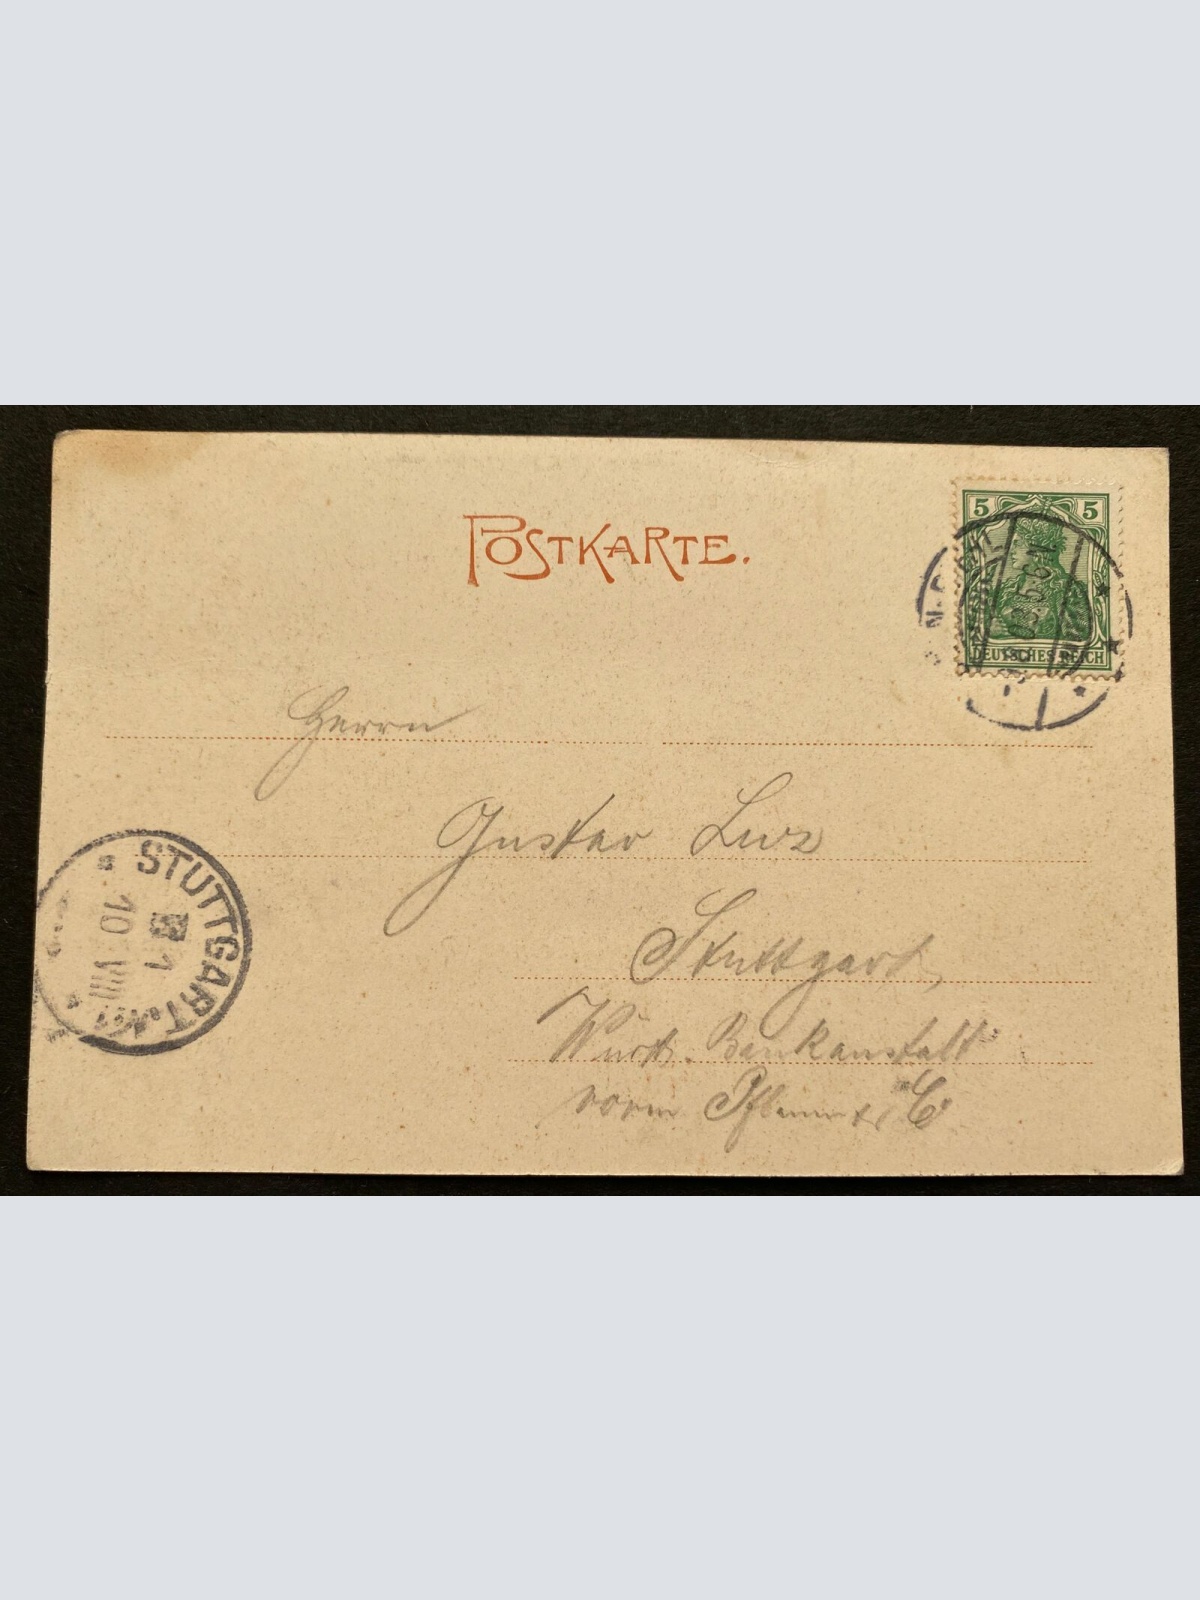 POSTKARTE.
5 5
DEUTSCHES REICH
Herrn
Gustav
Stuttgart,
Württ. Bankanstalt
vorm Pflaum & C
STUTTGART. No 1
1
10 VIII